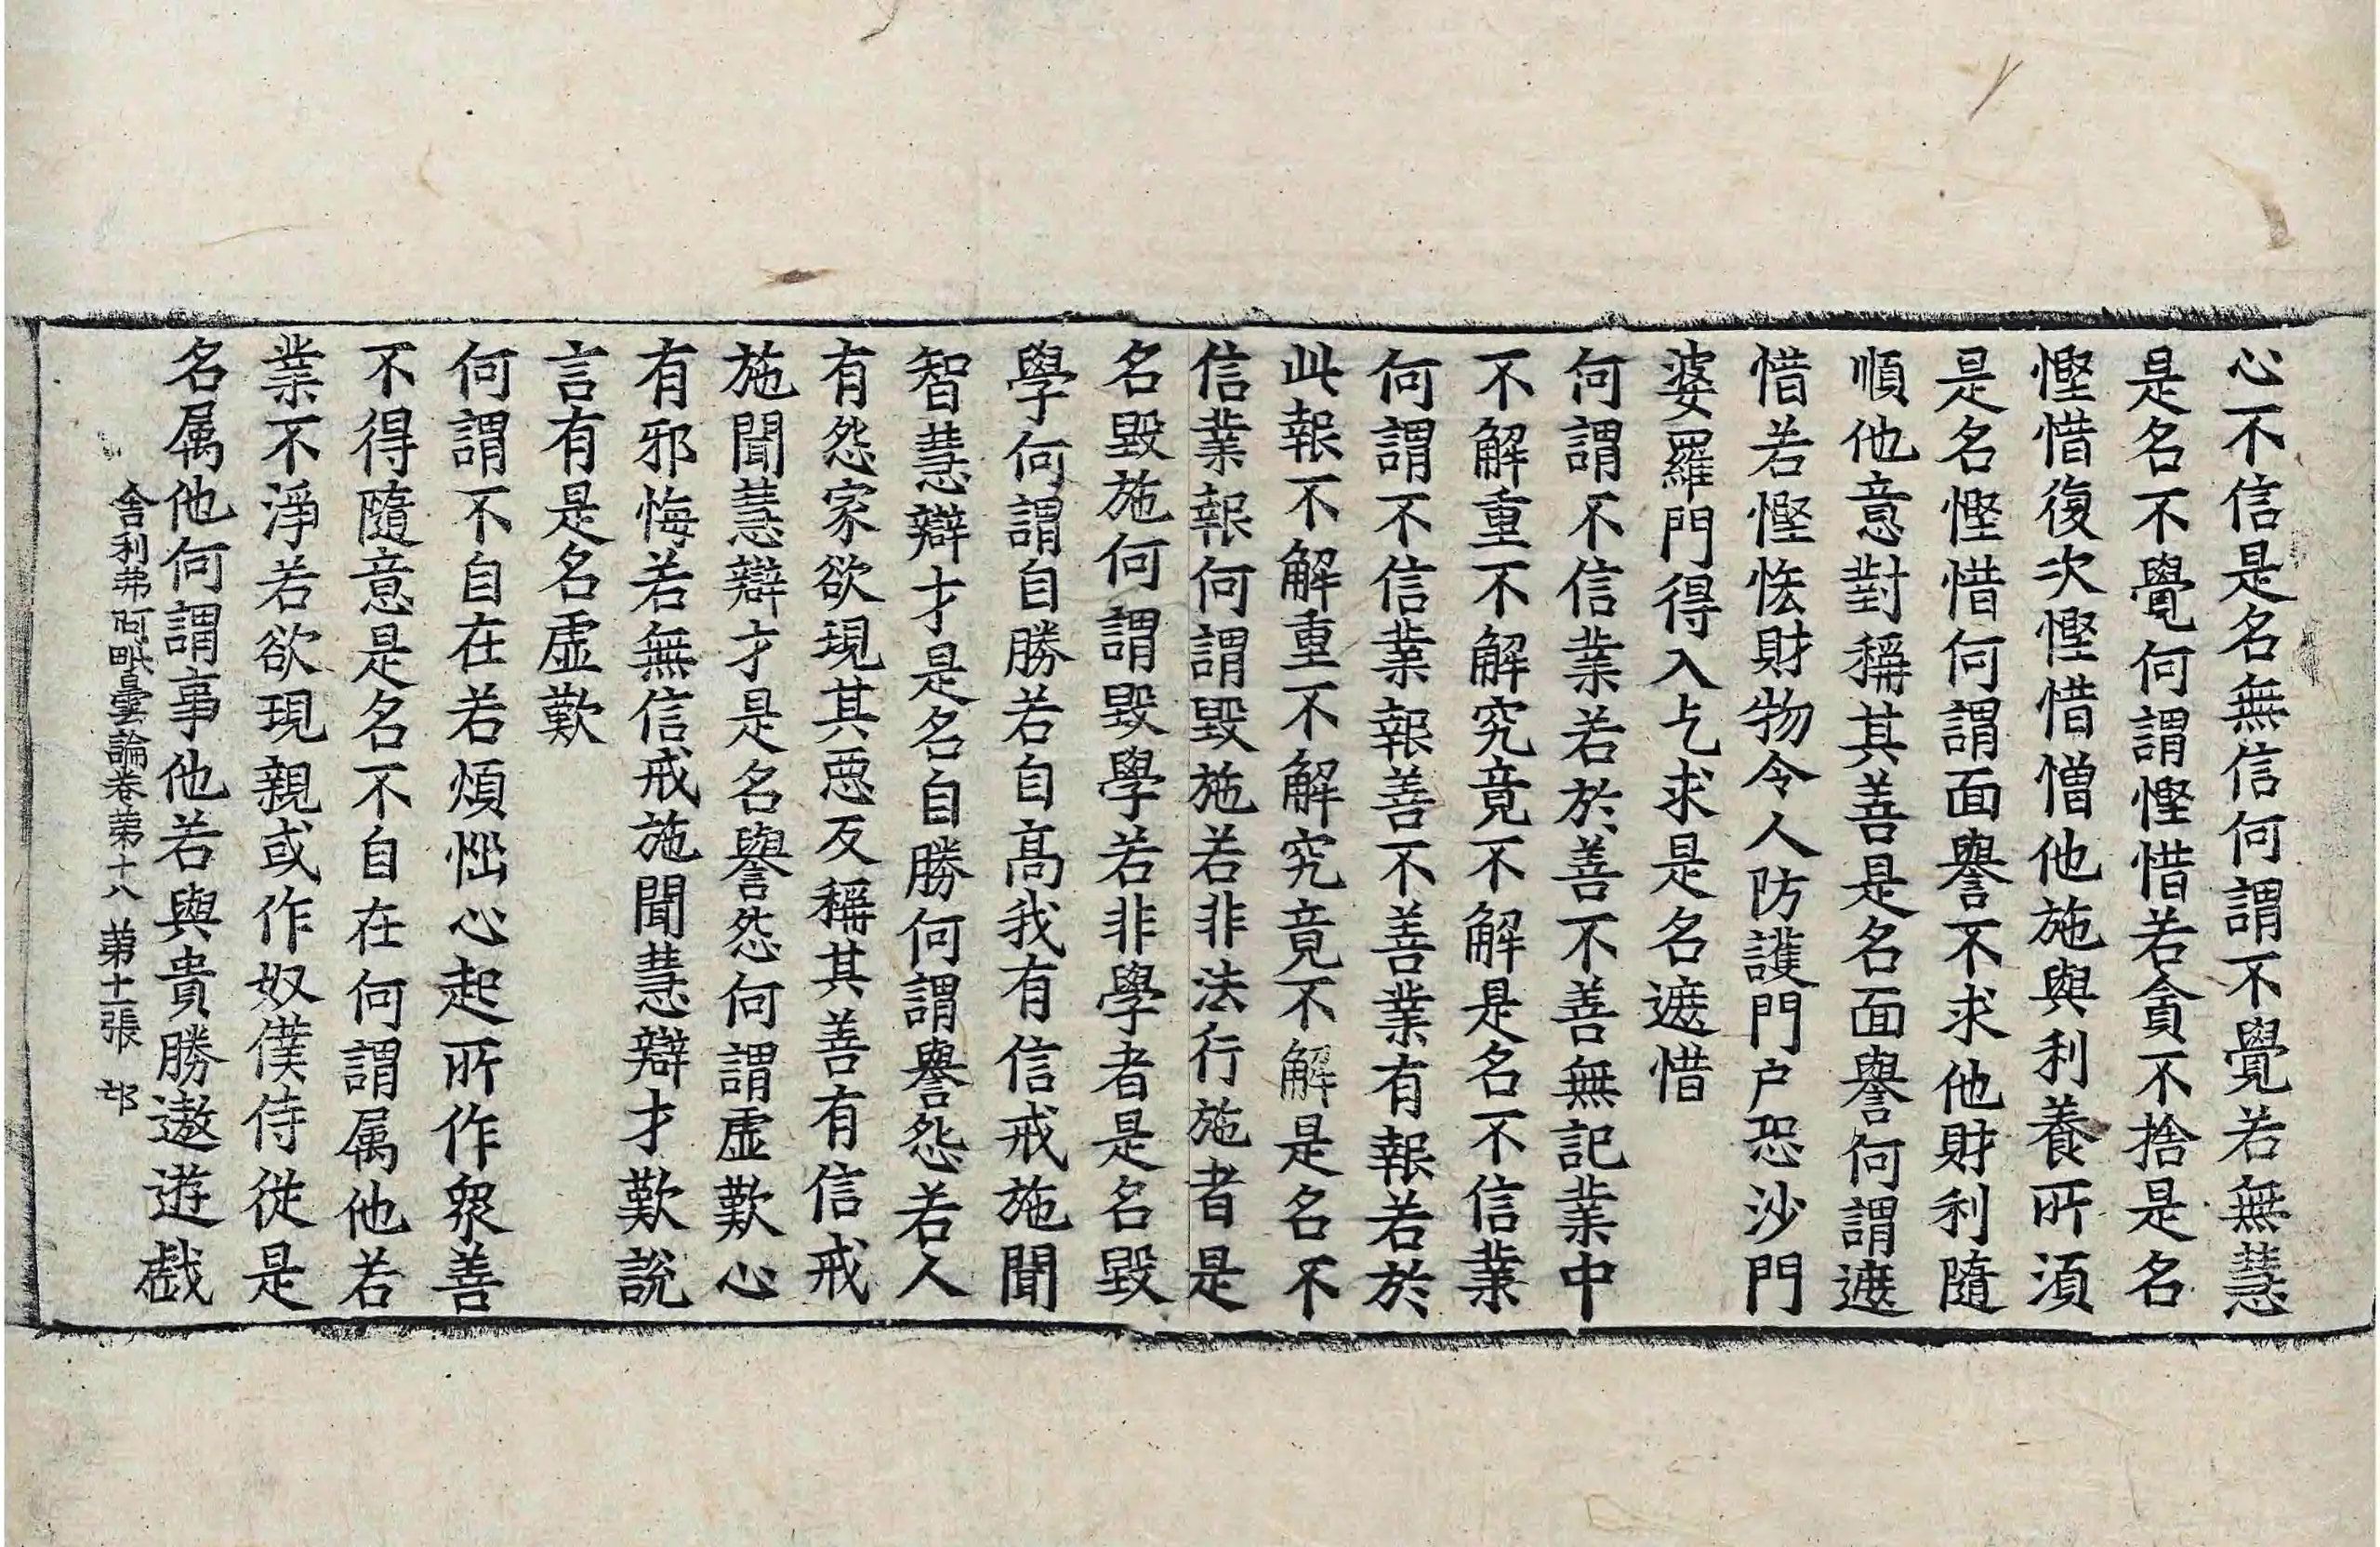 心不信是名無信何謂不覺若無慧
是名不覺何謂慳惜若貪不捨是名
慳惜復次慳惜憎他施與利養所須
是名慳惜何謂面譽不求他財利隨
順他意對稱其善是名面譽何謂遮
惜若慳恡財物令人防護門户恐沙門
婆羅門得入乞求是名遮惜
何謂不信業若於善不善無記業中
不解重不解究竟不解是名不信業
何謂不信業報善不善業有報若於
此報不解重不解究竟不解是名不
信業報何謂毀施若非法行施者是
名毀施何謂毀學若非學者是名毀
學何謂自勝若自高我有信戒施聞
智慧辯才是名自勝何謂譽怨若人
有怨家欲現其惡反稱其善有信戒
施聞慧辯才是名譽怨何謂虛歎心
有邪悔若無信戒施聞慧辯才歎說
言有是名虛歎
何謂不自在若煩惱心起所作衆善
不得隨意是名不自在何謂属他若
業不淨若欲現親或作奴僕侍從是
名属他何謂事他若與貴勝遨遊戲
舍利弗阿毗曇論卷第十八 第十一張